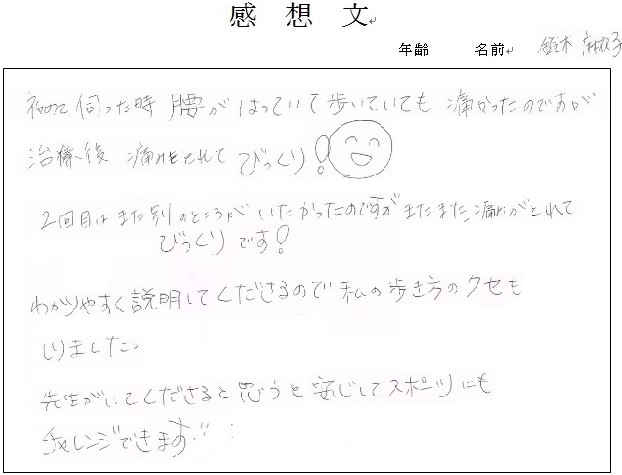 感想文
年齢 名前 鈴木 麻衣子
初めて伺った時 腰がはっていて歩いていても 痛かったのですが
治療後 痛みもとれて びっくり!
2回目はまた別のところがいたかったのですがまたまた痛みがとれて
びっくりです!
わかりやすく説明してくださるので私の歩き方のクセも
しりました。
先生がいてくださると思うと安心してスポーツにも
チャレンジできます!!